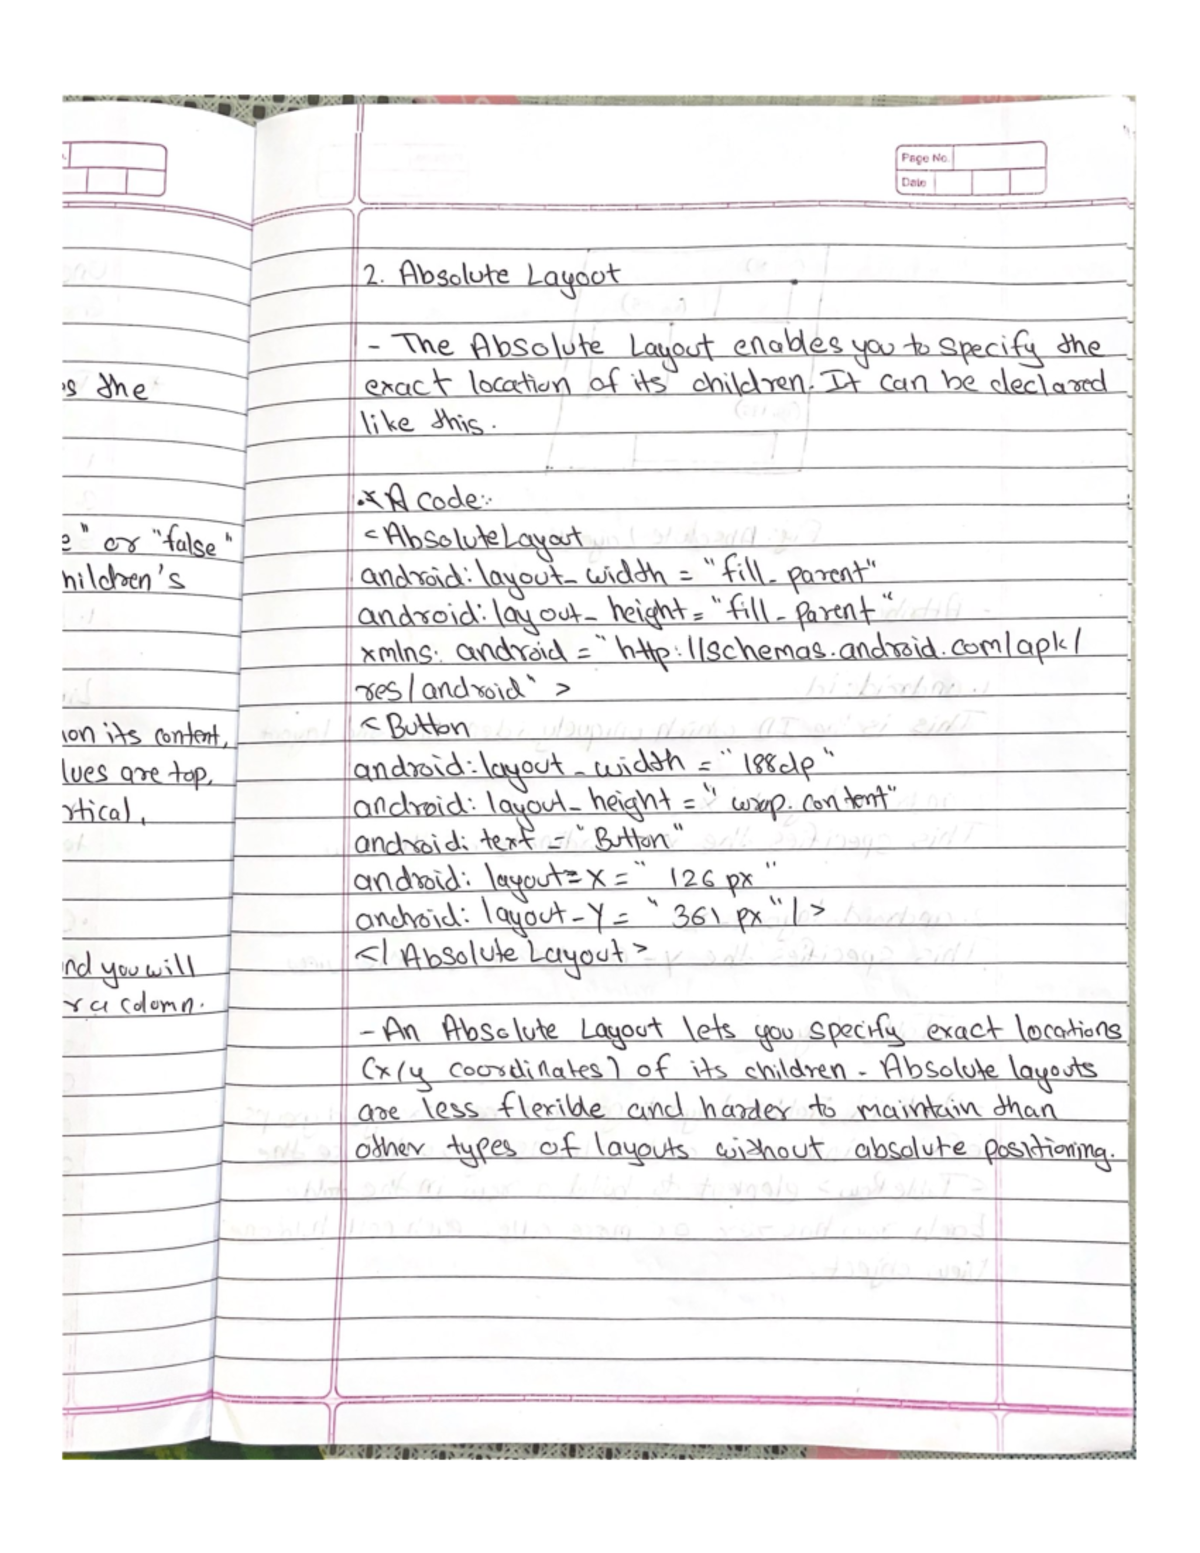 Page No.
Date
s the
e" or "false"
hildren's
ion its content,
lues are top,
rtical,
nd you will
r a column.
2. Absolute Layout
- The Absolute Layout enables you to specify the
exact location of its children. It can be declared
like this.
* A code:-
<AbsoluteLayout
android:layout_width = "fill_parent"
android:layout_height = "fill_parent"
xmlns: android = "http://schemas.android.com/apk/
res/android" >
<Button
android:layout_width = "188dp"
android: layout_height = "wrap.content"
android: text = "Button"
android: layout=X = "126 px"
android: layout_Y = "361 px"/>
</Absolute Layout>
- An Absolute Layout lets you specify exact locations
(x/y coordinates) of its children - Absolute layouts
are less flexible and harder to maintain than
other types of layouts without absolute positioning.